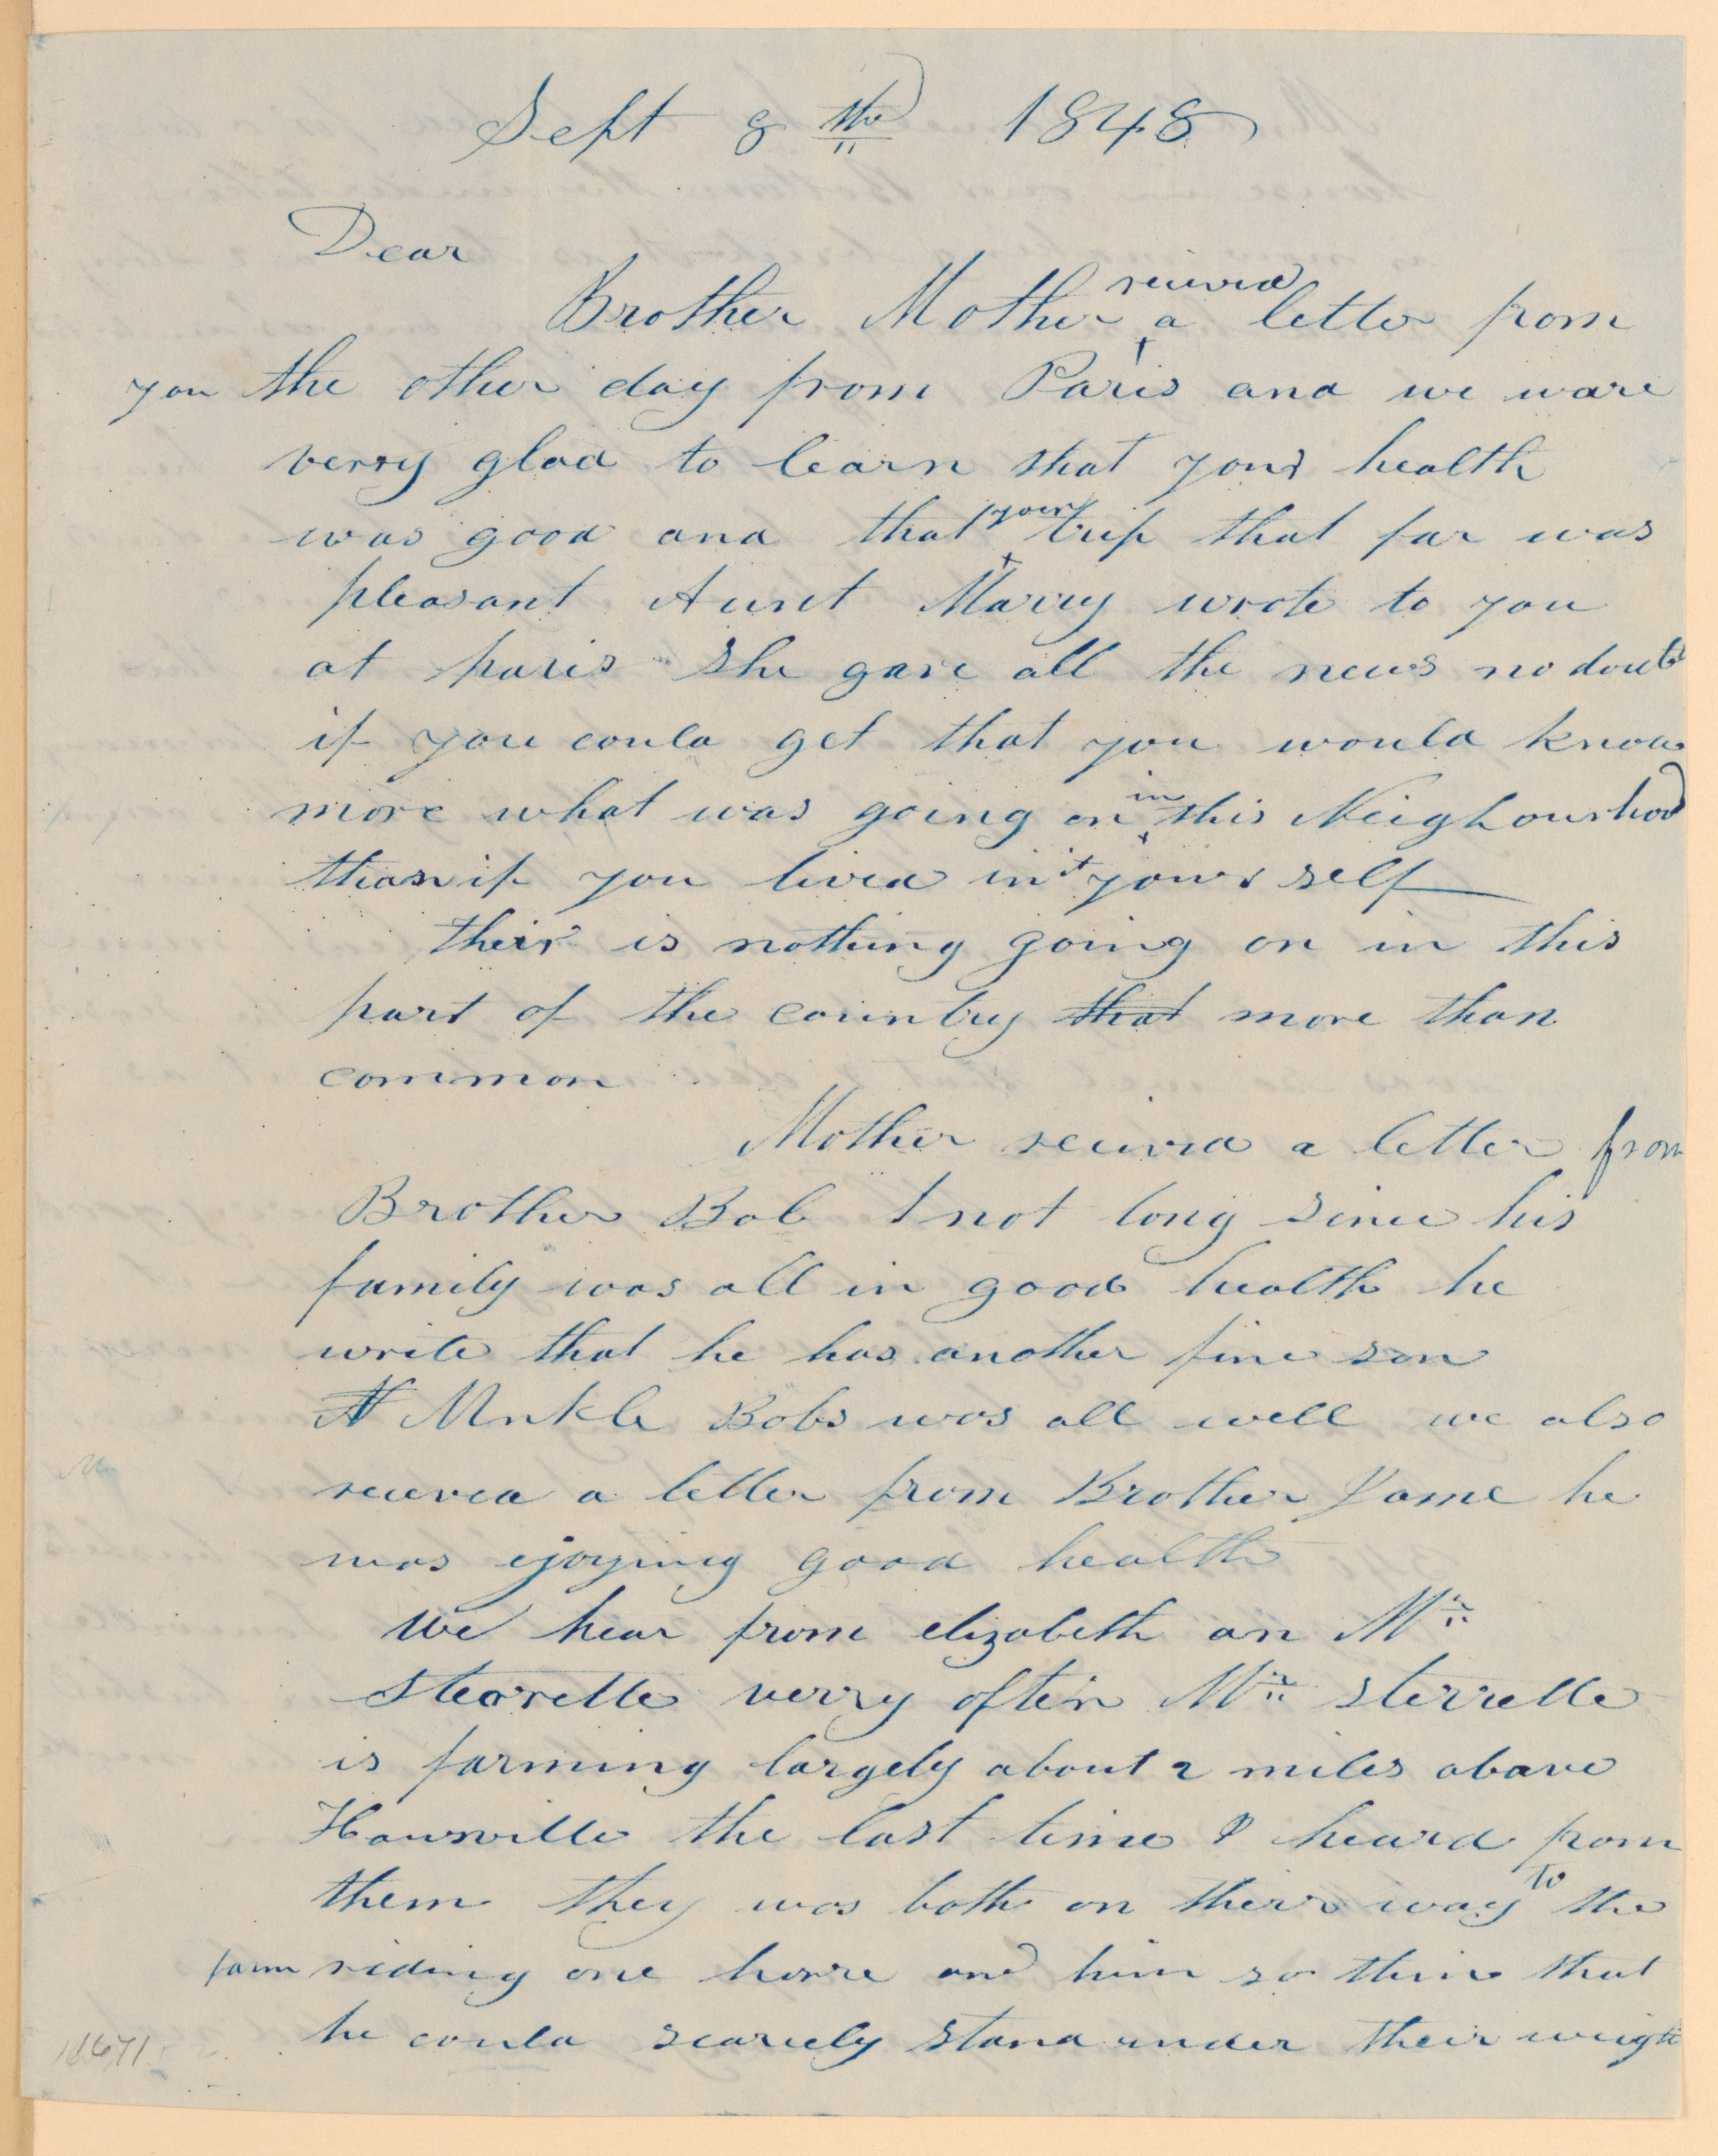 Sept 8th 1848
Dear
Brother Mother recived a letter from
you the other day from Paris and we ware
verry glad to learn that your health
was good and that your trip that far was
pleasant Aunt Marry wrote to you
at paris She gave all the news no doubt
if you could get that you would know
more what was going on in this Neighbourhood
than if you lived in it your self
their is nothing going on in this
part of the country that more than
common
Mother recived a letter from
Brother Bob not long since his
family was all in good health he
write that he has another fine son
Unkle Bobs was all well we also
recieved a letter from Brother Jame he
was ejoying good health
We hear from elizabeth an Mr
Sterrette verry often Mr Sterrette
is farming largely about 2 miles above
Hawsville the last time I heard from
them they was both on their way to the
farm riding one horse and him so thin that
he could scarcely stand under their weight
11671